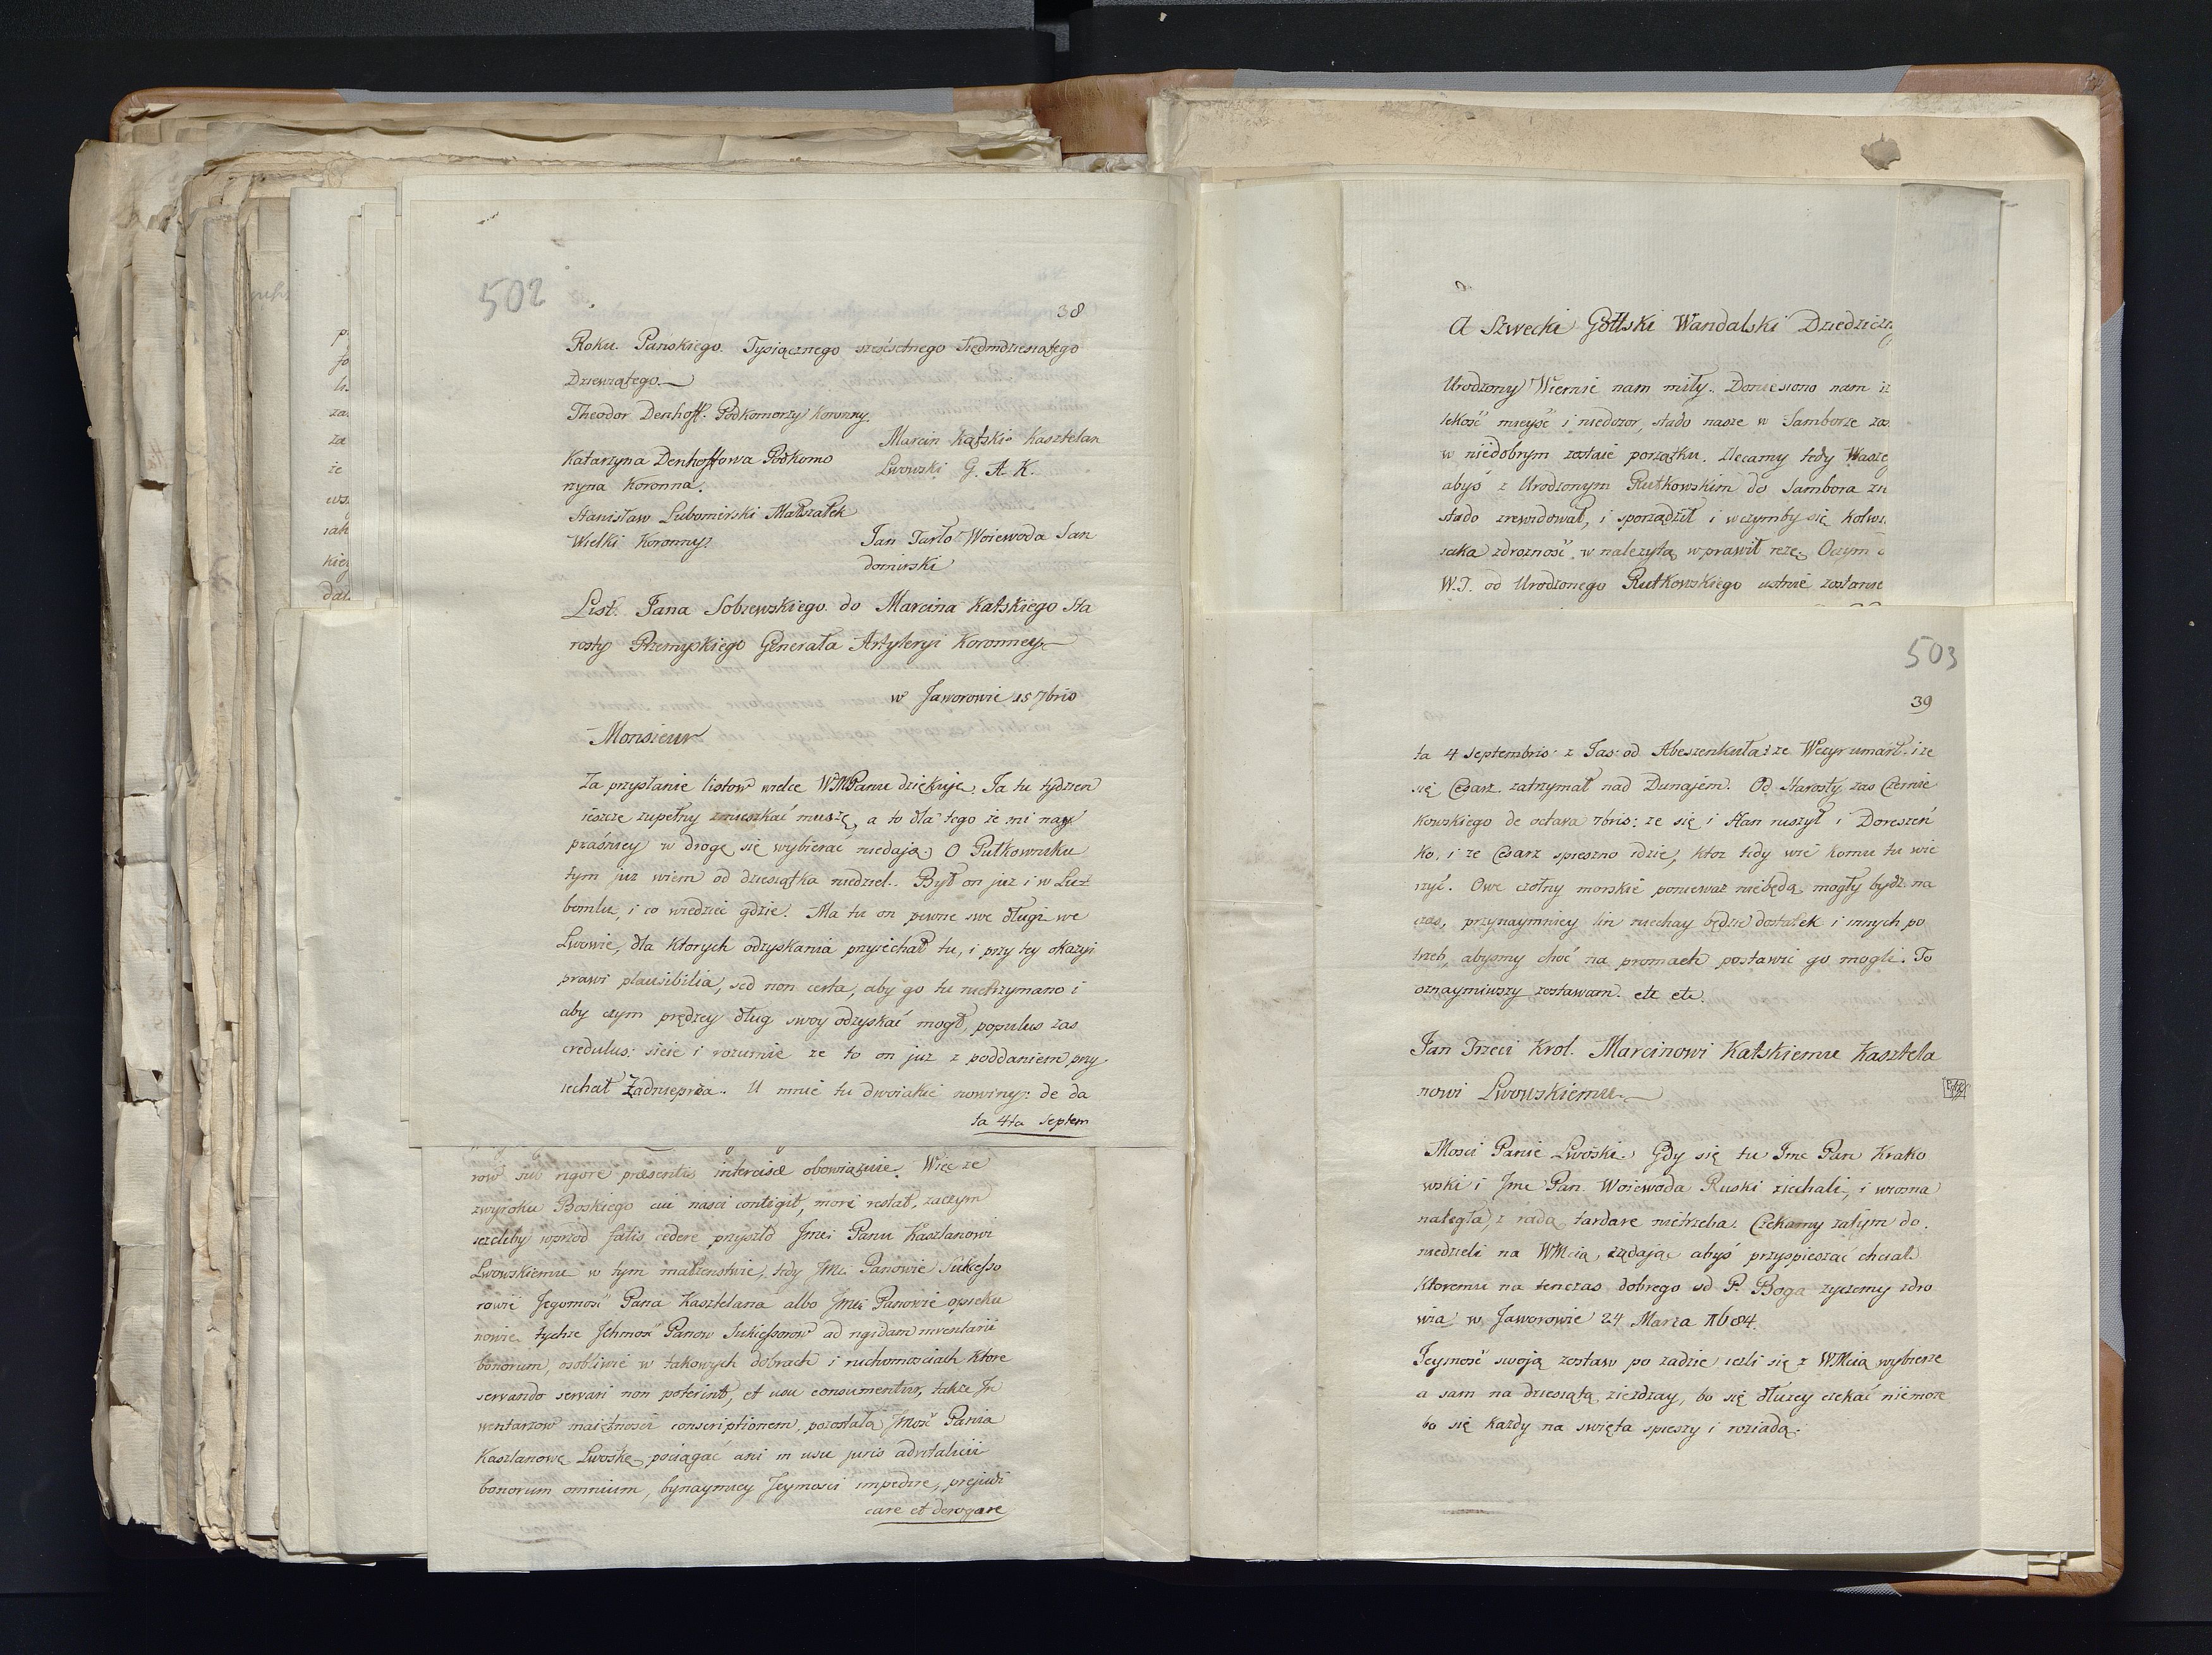 502
38
Roku Pańskiego Tysiącznego szescsetnego Siedmdziesiątego
Dziewiątego.
Theodor Denhoff. Podkomorzy Koronny.
Marcin Kątski Kasztelan
Lwowski G. A. K.
Katarzyna Denhoffowa Podkomo
rzyna Koronna.
Stanisław Lubomirski Marszałek
Wielki Koronny.
Jan Tarło Woiewoda San
domirski
List. Jana Sobiewskiego do Marcina Katskiego Sta
rosty Przemyskiego Generała Artyleryi Koronney
w Jaworowie 15 7bris
Monsieur
Za przysłanie listow wielce WMPanu dziękuję. Ja tu tydzien
ieszcze zupełny zmieszkać muszę, a to dla tego że mi nay
praśniey w drogę się wybierać niedają. O Putkowniku
tym juz wiem od dziesiątka niedziel. Był on juz i w Lu
bomlu, i co wiedzieć gdzie. Ma tu on pewne swe długi we
Lwowie, dla ktorych odzyskania przyiechał tu, i przy tey okazyi
prawi plausibilia, sed non certa, aby go tu nietrzymano i
aby czym prędzey dług swoy odzyskać mogł, populus zas
credulus: sieie i rozumie ze to on juz z poddaniem przy
iechał Zadnieprza. U mnie tu dwoiakie nowiny: de da
ta 4ta septem
row sub rigore præsentis intercisæ obowiązuie. Wiec ze
zwyroku Boskiego cui nasci contigit, mori restat, zaczym
iezeliby wprzod fatis cedere przyszło Jmci Panu Kasztlanowi
Lwowskiemu w tym małżenstwie, tedy Jmci Panowie Sukcesso
rowie Jegomosci Pana Kasztelana albo Jmci Panowie opieku
nowie tychze Jchmosc Panow Sukcessorow ad rigidam inventarii
bonorum, osobliwie w takowych dobrach i ruchomosciach ktore
servando servari non poterint, et usu consumentur, takze In
wentarzow maiętnosci conscriptionem, pozostałą Jmość Panią
Kasztlanowę Lwoską pociągać ani in usu juris advitalicii
bonorum omnium, bynaymniey Jeymosci impedire, prejudi
care et derogare
A Szwecki Gottski Wandalski Dziedziczny
Urodzony Wiernie nam miły. Doniesiono nam iż
lekość mieysc i niedozor, stado nasze w Samborze
w niedobrym zostaie porządku. Zlecamy tedy
abyś z Urodzonym Rutkowskim do Sambora
stado zrewidował, i sporządził i wczymby się
iaka zdrozność w nalezytą wprawił rezę. Oczym
W.T. od Urodzonego Rutkowskiego ustnie zostanie
503
39
ta 4 Septembris z Jas: od Abeszenkuła: ze Wezyr umarł. i ze
się Cesarz zatrzymał nad Dunajem. Od Starosty zas Czernie
kowskiego de octava 7bris: ze się i Han ruszył i Doreszeń
ko, i ze Cesarz spieszno idzie, ktoz tedy wie komu tu wie
rzyć. Owe czołny morskie poniewaz niebędą mogły bydz na
czas, przynaymniey lin niechay będzie dostatek i innych po
trzeb, abysmy choć na promach postawić go mogli. To
oznaymiwszy zostawam. etc etc.
Jan Trzeci Krol. Marcinowi Katskiemu Kasztela
nowi Lwowskiemu
Mosci Panie Lwoski. Gdy się tu Jmc Pan Krako
wski i Jmc Pan Woiewoda Ruski ziechali, i wiosna
naległa, z radą tardare nietrzeba. Czekamy zatym do
niedzieli na WMcią, ządając abyś przyspieszać chciał.
Ktoremu na tenczas dobrego od P. Boga zyczemy zdro
wia w Jaworowie 24 Marca 1684.
Jeymość swoją zostaw po zadzie iezli się z WMcią wybierze
a sam na dziesiątą ziezdzay, bo się dłuzey czekać niemoze
bo się kazdy na swięta spieszy i roziada.